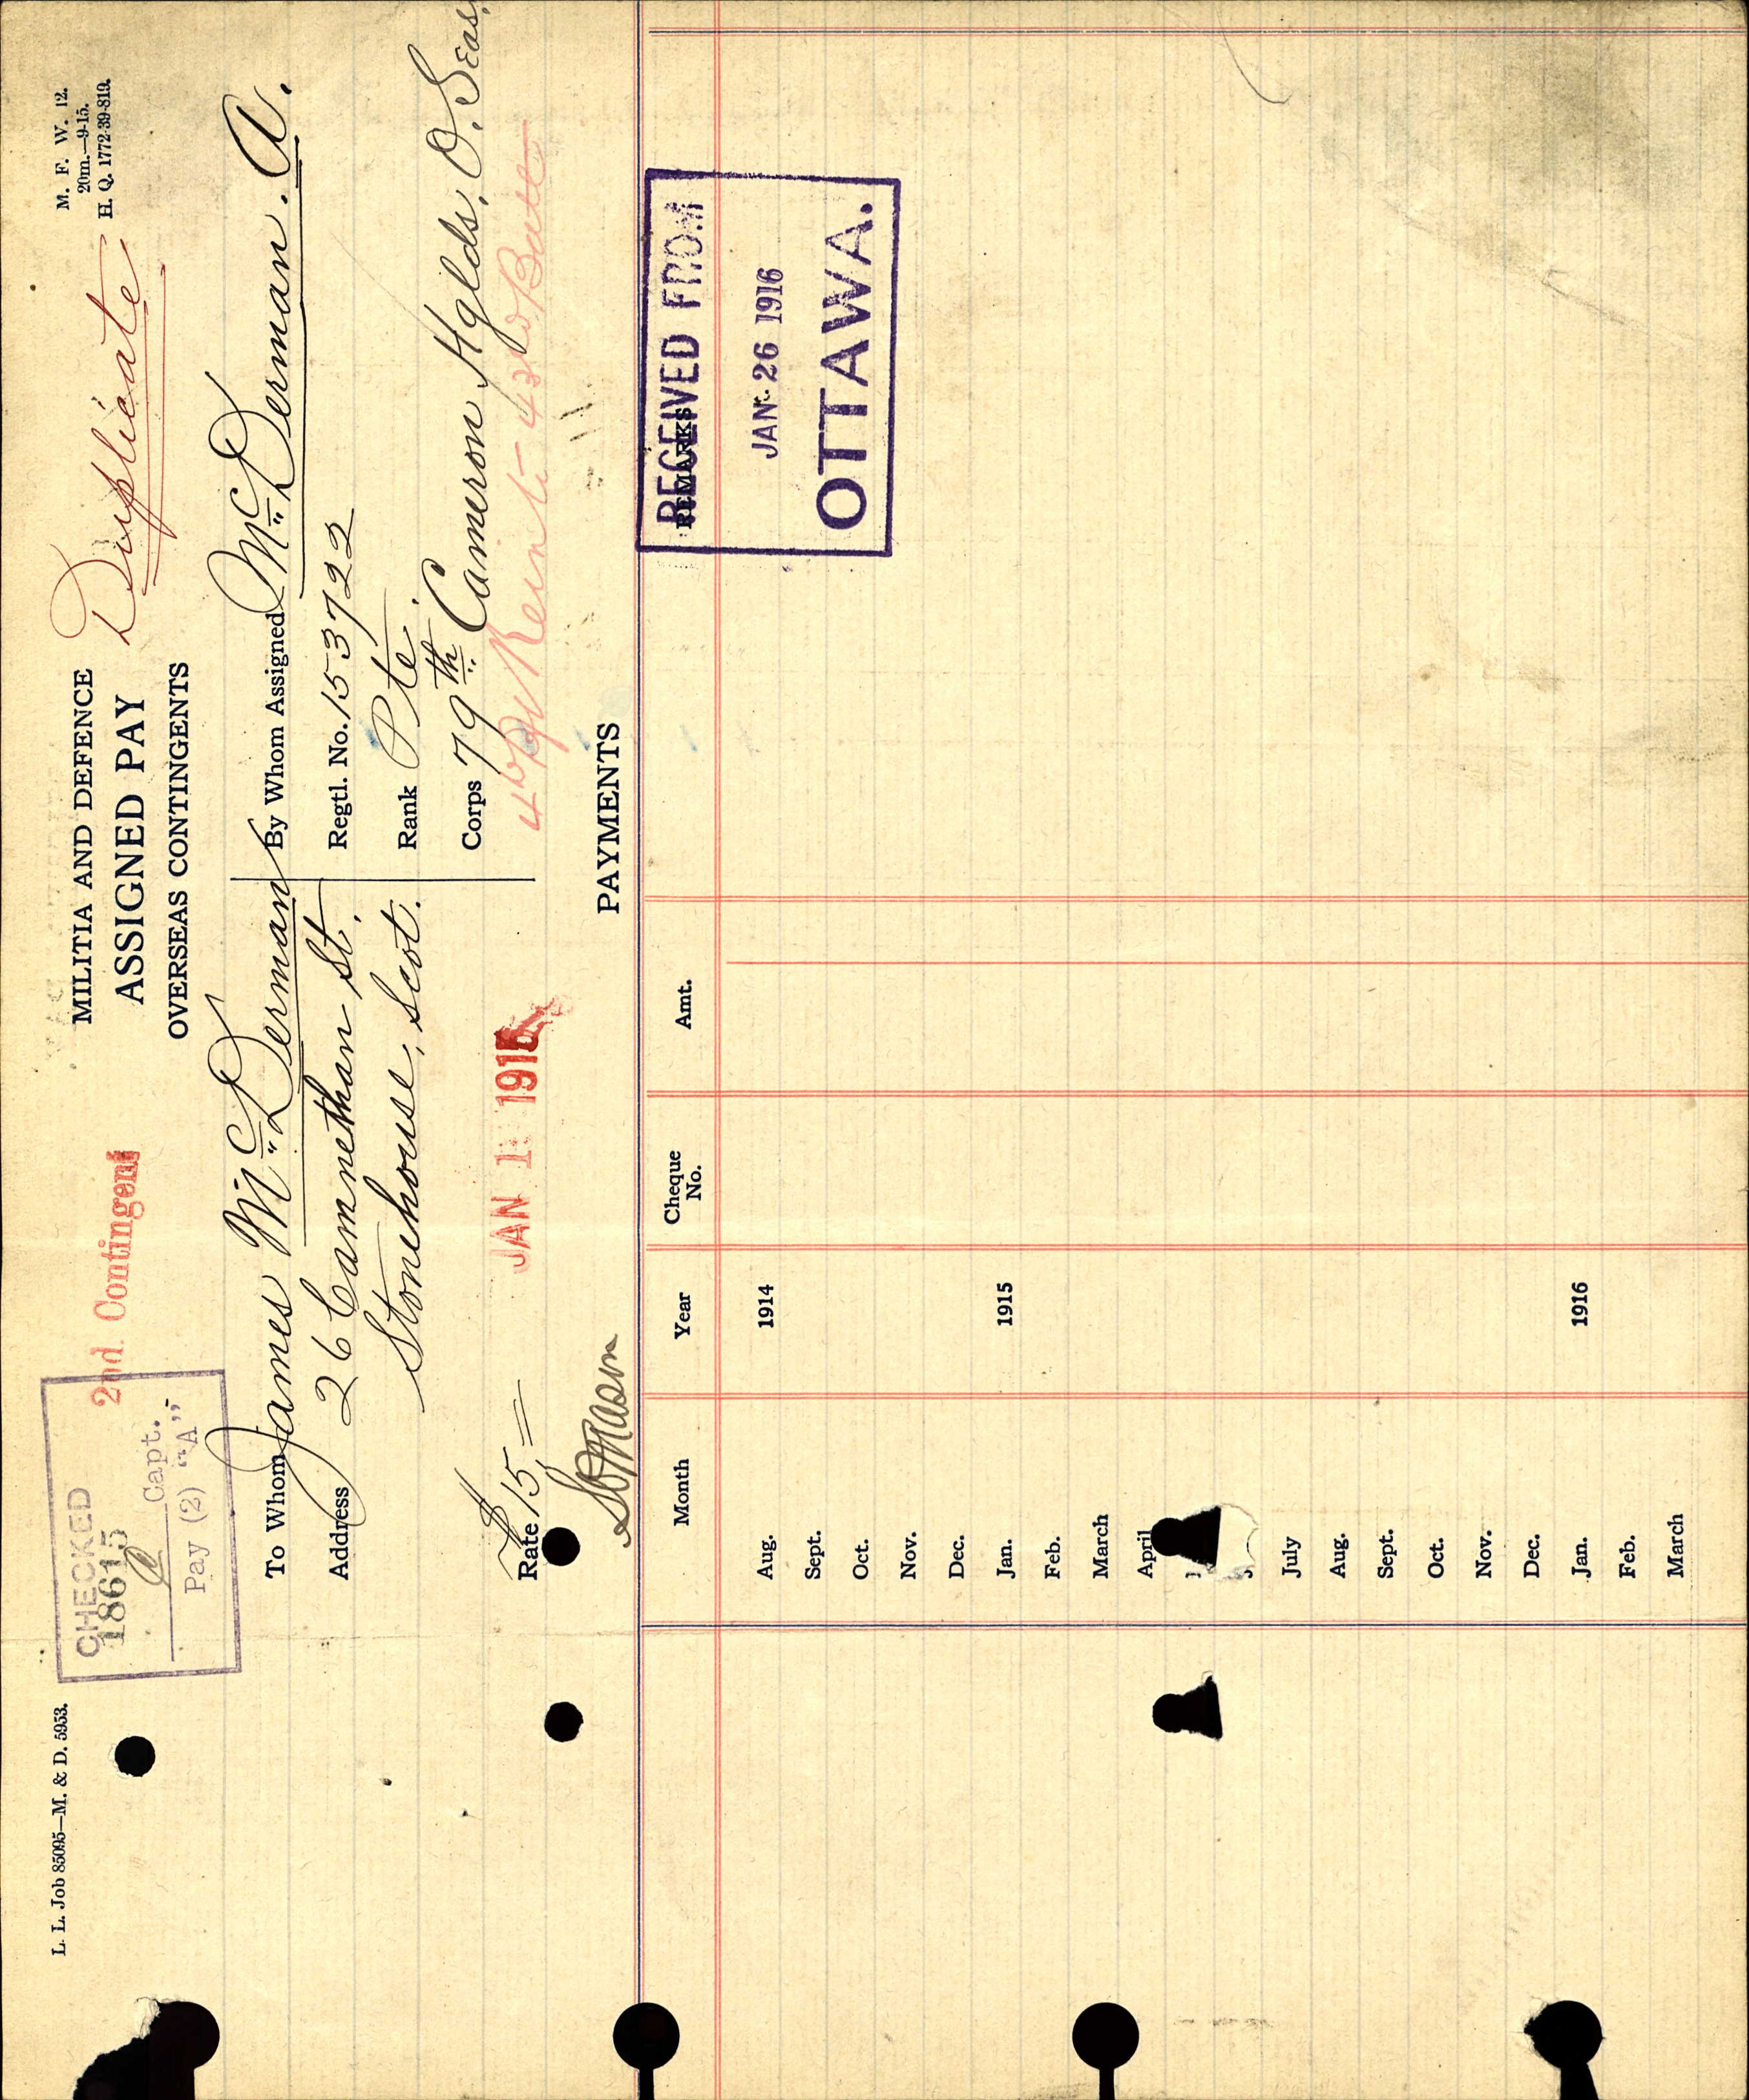 L. L. Job 85095—M. & D. 5953.
M. F. W. 12.
20m.—9-15.
H. Q. 1772-39-819.
CHECKED
18615
Capt.
Pay (2) "A"
2nd. Contingent
MILITIA AND DEFENCE
ASSIGNED PAY
OVERSEAS CONTINGENTS
Duplicate
To Whom James McDerman
Address 26 Camnethan St.
Stonehouse, Scot.
Rate $15=
JAN 1 1916
By Whom Assigned McDerman. A.
Regtl. No. 153722
Rank Pte.
Corps 79th Cameron Hglds. O. Seas.
43rd Batt
PAYMENTS
Month Year Cheque No. Amt. REMARKS
RECEIVED FROM
JAN 26 1916
OTTAWA.
Aug. 1914
Sept.
Oct.
Nov.
Dec.
Jan. 1915
Feb.
March
April
July
Aug.
Sept.
Oct.
Nov.
Dec.
Jan. 1916
Feb.
March